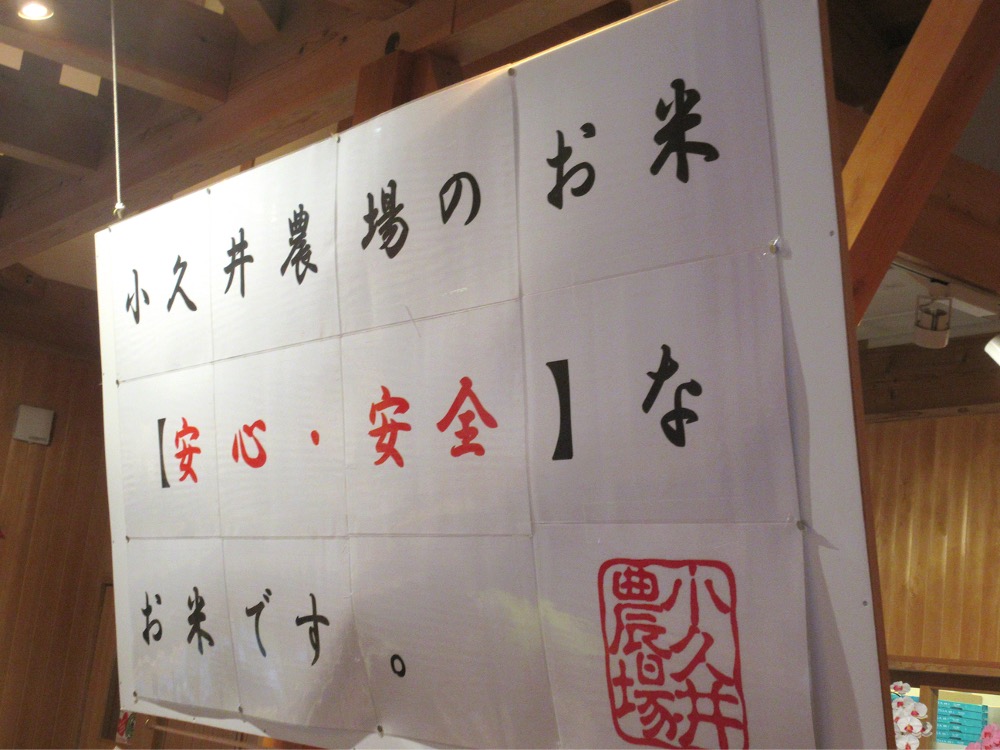 小久井農場のお米
【安心・安全】な
お米です。
小久井
農場